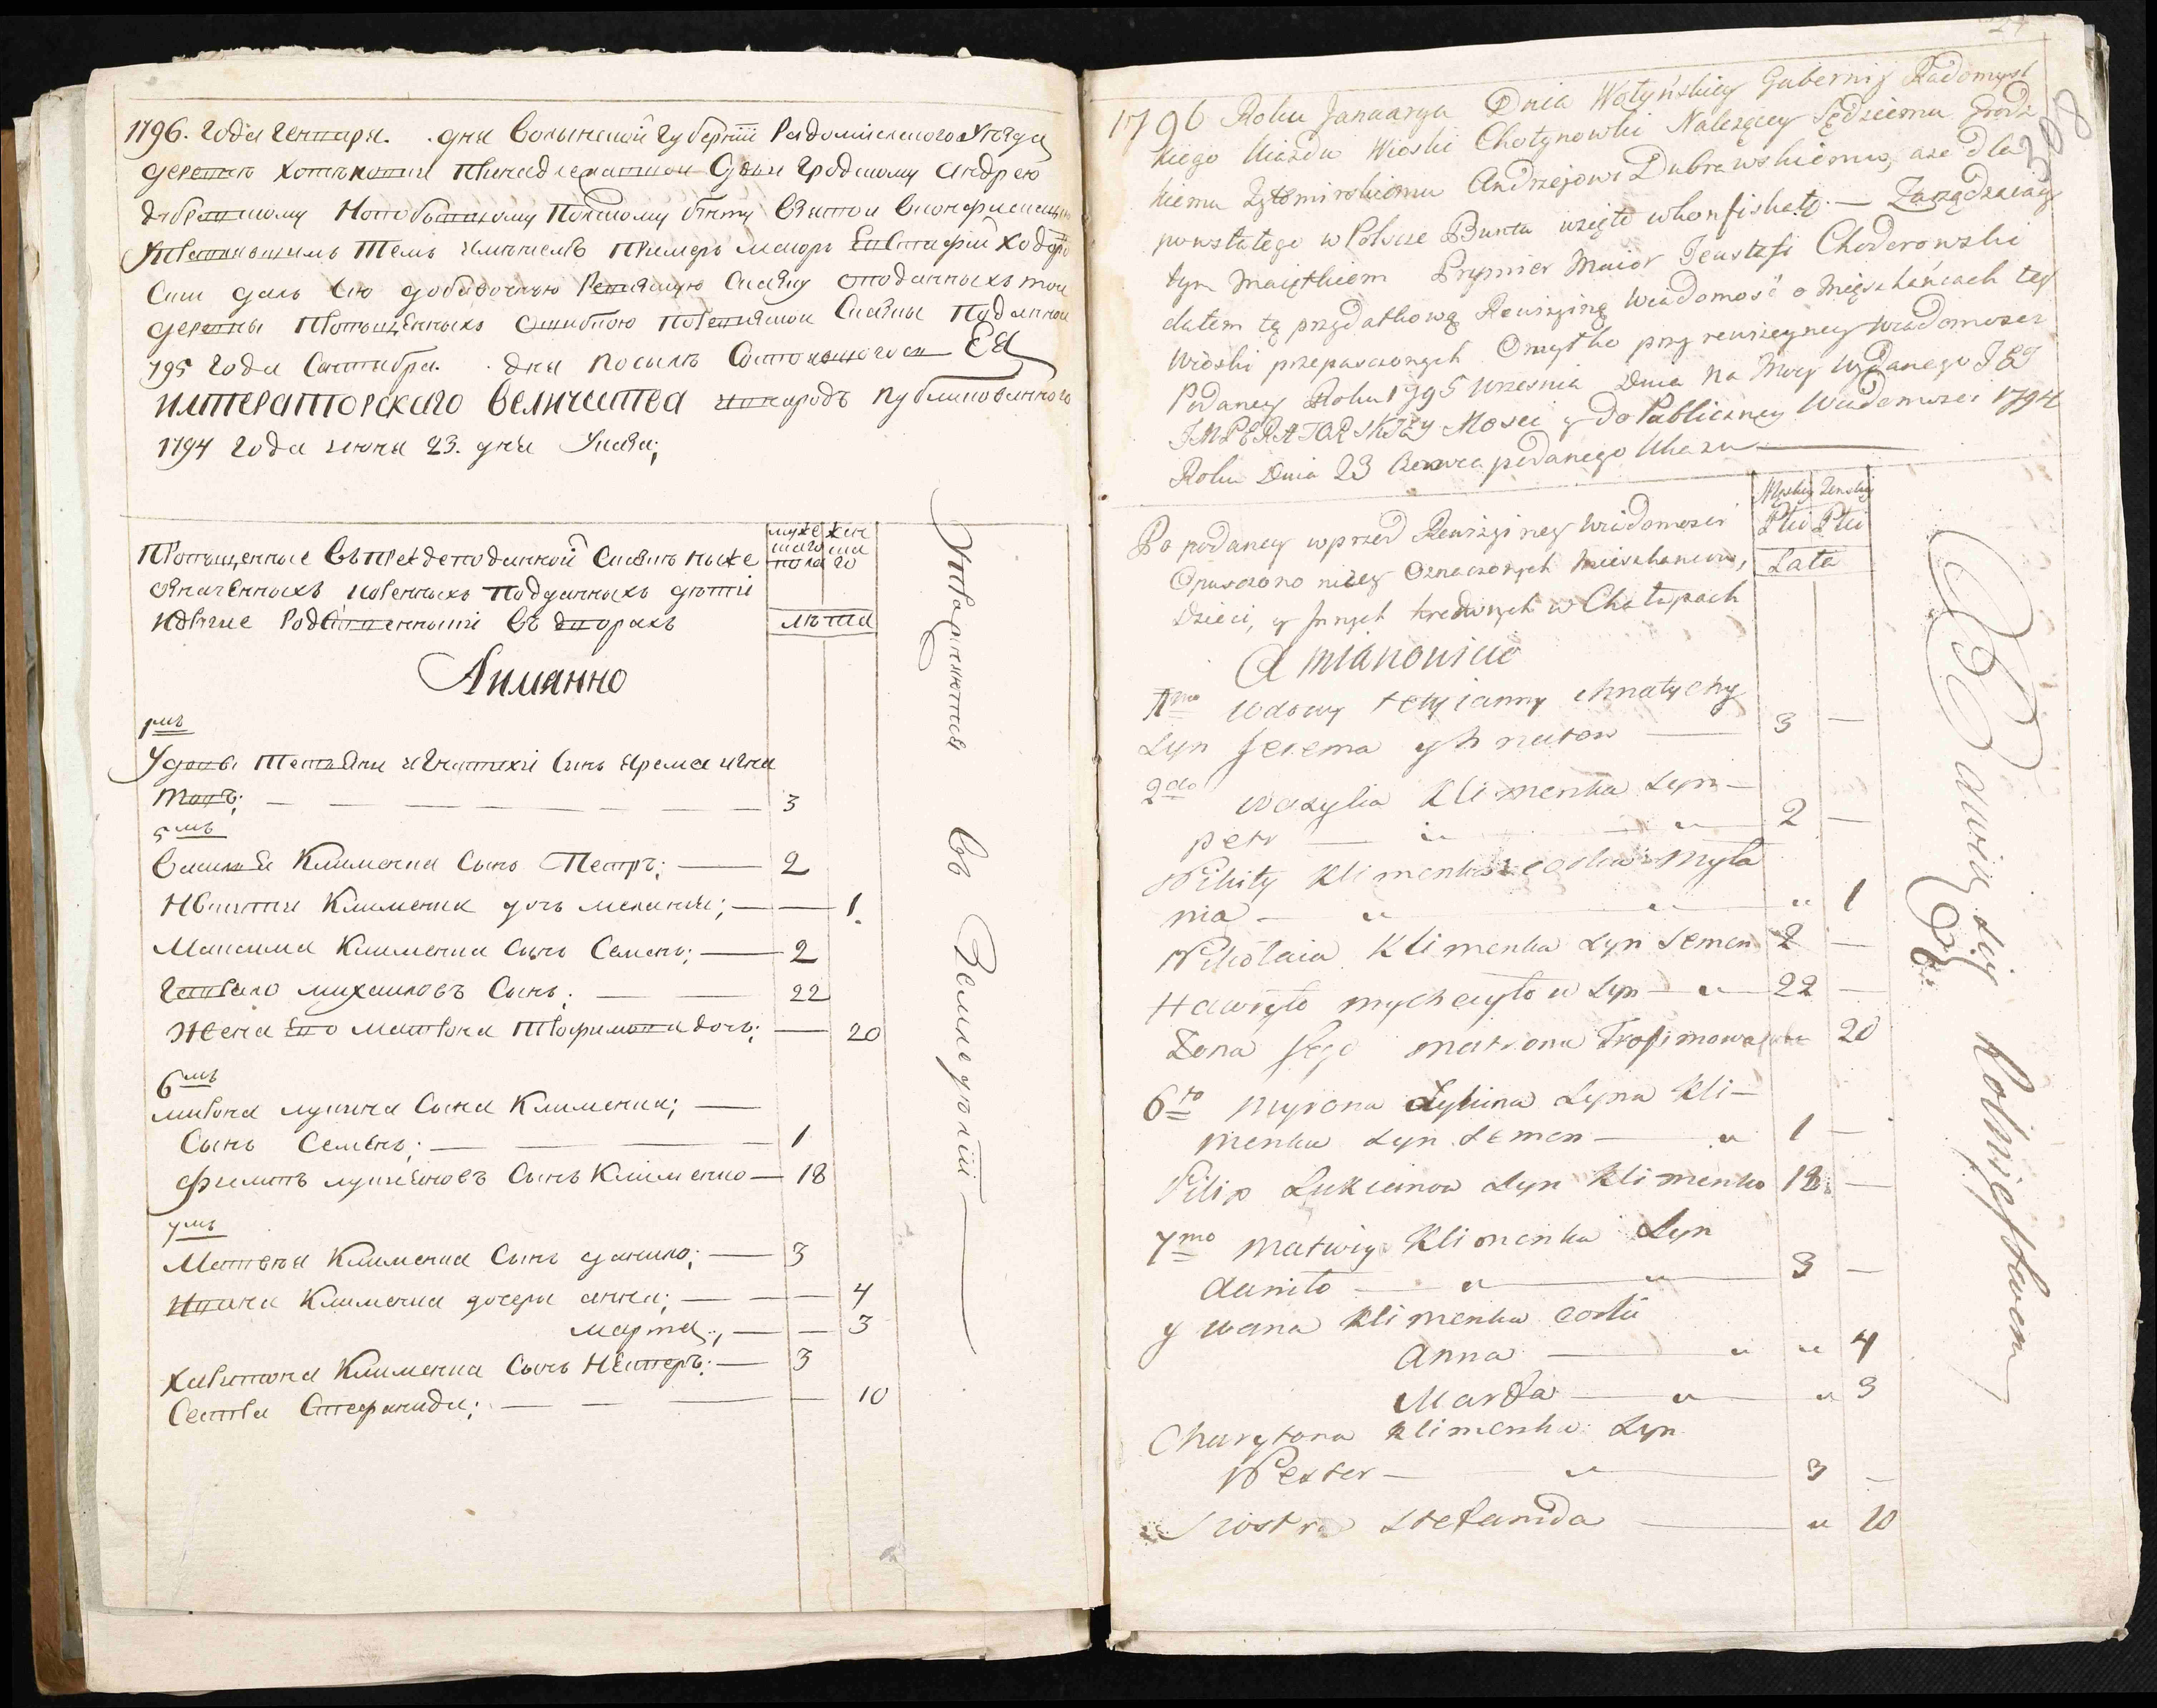 1796. Года Генваря. . дня Волынской Губернїи Радомислского Уезда
деревню Хотиновки Принадлежащои Судьи Гродскому Андрею
Дубровскому Попобывшому Полскому бунту Взятои Вконфискацию
Управляющимъ Темъ имениемъ Примеръ маиоръ Евстафїй Ходоро
вски далъ Сию добавочную Ревизкую Сказку оподанныхъ тои
деревны Пропущенныхъ Ошибкою приревизкои Сказки Поданнои
795 Года Сентября. . дня посилъ Состоявшогося ЕЯ
ИМПЕРАТОРСКАГО ВЕЛИЧЕСТВА инародъ публикованного
1794 года июня 23. дня Указа;
Пропущенные Въпреждеподанной Сказкы ниже
означенныхъ ревизкихъ подданныхъ дѣтей
идругие Родственныи въ дворахъ
мужескаго пола
женскаго
лѣта
Аимянно
1мъ
Удови Татияни игнатихи Синъ ярема игна
товъ; 3
5мъ
Василия Клименка Сынъ Петръ; 2
Никити Клименка дочь мелания; 1.
Максима Клименка Сынъ Семенъ; 2
Гаврило михаиловъ Сынъ; 22
Жена Его матрона Трофимова дочь; 20
6мъ
мирона лукина Сына Клименка;
Сынъ Семенъ; 1
Филипъ лукияновъ Сынъ Клименко 18
7мъ
Матвея Клименка Сынъ данило; 3
Ивана Клименка дочери анна; 4
марта; 3
Харитона Клименка Сынъ Нестеръ: 3
Сестра Стефанида; 10
Управляются въ Земледелїи
24
803
1796 Roku Januarya Dnia Wołyńskiey Gubernij Radomysl
kiego Uiazdu Wioski Chotynowki Należącey Sędziemu Grodz
kiemu Żytomirskiemu Andrzejowi Dubrawskiemu, aże dla
powstałego w Polszcze Buntu wzięte wkonfiskatę. — Zarządzaiący
tym Maiątkiem Prymier Maior Jeustafi Choderowski
dałem tę przydatkową Rewizyiną Wiadomość o Mieszkańcach tey
Wioski przepuszczonych Omyłko przy rewizeyney wiadomosci
Podaney Roku 1795 Wrzesnia Dnia Na Mocy Wydanego JEJ
IMPERATORSKIEY Mosci y Do Publiczney Wiadomosci 1794
Roku Dnia 23 Czerwca podanego Ukazu
Po podaney wprzod Rewizyiney Wiadomosci
Opuszczono niżey Oznaczonych Mieszkancow,
Dzieci, y Innych krewnych w Chałupach
Męskiey Płci
Żenskiey Płci
Lata
A mianowicie
1mo wdowy tetyianny ihnatychy
Syn Jerema yhnatow 3 —
2do wasylia Klimenka Syn
petr 2 —
Nikity Klimenka corka Myła
nia " 1
Nikołaia Klimenka Syn Semen 2 —
Hawryło mychayłow Syn 22 —
Żona Jego matrona Trofimowa 20
6to Myrona Łykina Syna Kli-
menka Syn Semen 1 —
Filip Łukianow Syn Klimenko 18 —
7mo Matwiy Klimenka Syn
daniło 3 —
y wana Klimenka corki
Anna " 4
Marta " 3
Charytona Klimenka Syn
Nester 3 —
Siostra Stefanida " 10
Bawią się Rolnictwem